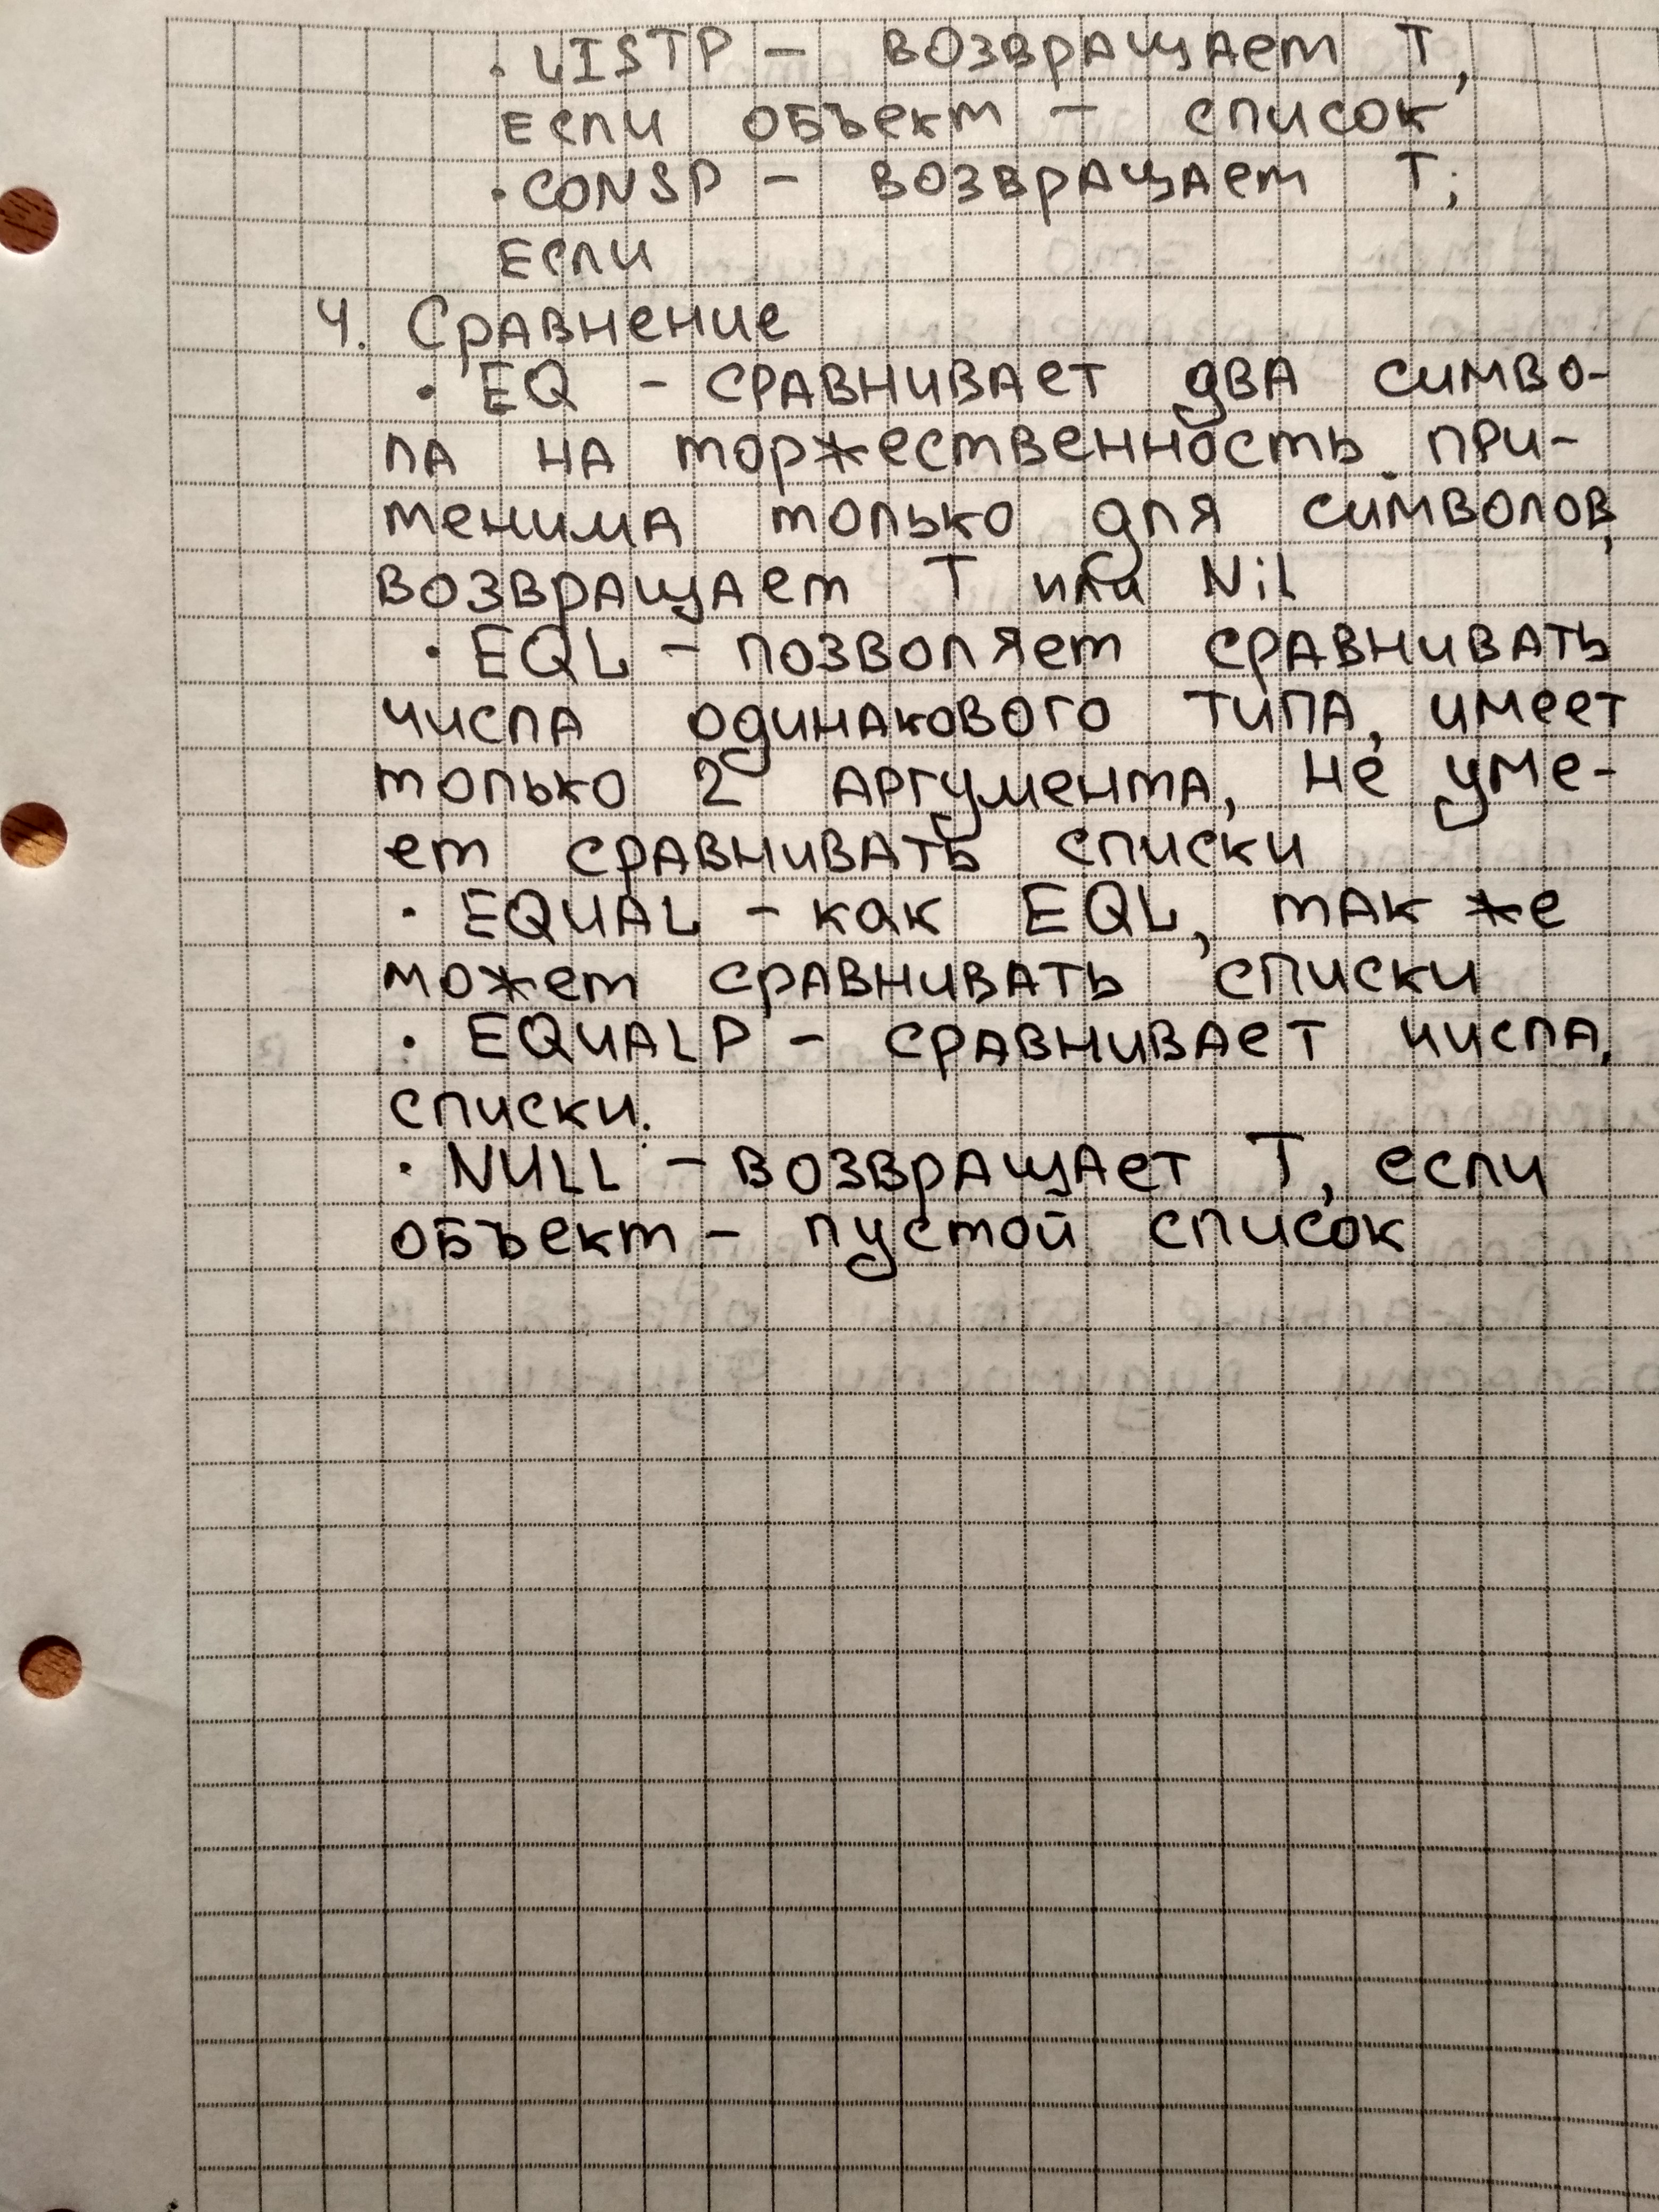 · LISTP – возвращает T,
если объект – список
· CONSP – возвращает T,
если
4. Сравнение
· EQ – сравнивает два симво-
ла на торжественность. при-
менима только для символов,
возвращает T или Nil
· EQL – позволяет сравнивать
числа одинакового типа, имеет
только 2 аргумента, не уме-
ет сравнивать списки
· EQUAL – как EQL, так же
может сравнивать списки
· EQUALP – сравнивает числа,
списки.
· NULL – возвращает T, если
объект – пустой список